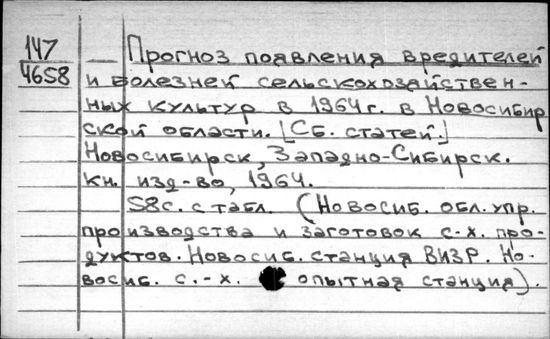 147
4658
— Прогноз появления вредителей
и болезней сельскохозяйствен-
ных культур в 1964 г. в Новосибир
ской области. [Сб. статей.]
Новосибирск, Западно-Сибирск.
кн. изд-во, 1964.
58с. с табл. (Новосиб. обл. упр.
производства и заготовок с-х. про-
дуктов. Новосиб. станция ВИЗР. Но-
восиб. с.-х. опытная станция).